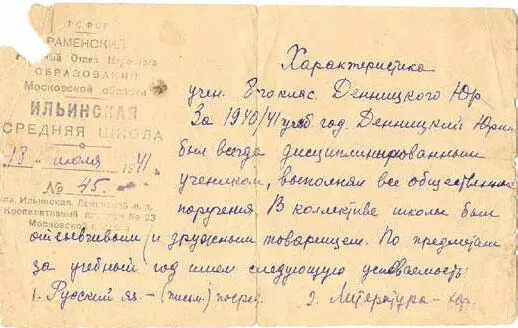 РСФСР
РАМЕНСКИЙ
Отдел Народного
ОБРАЗОВАНИЯ
Московской области
ИЛЬИНСКАЯ
СРЕДНЯЯ ШКОЛА
18 июля 1941.
№ 45.
Ильинская, Ленинской ж. д.
Кооперативный № 23
Московской
Характеристика
учен. класс. Денницкого Юр
За 1940/41 учеб год. Денницкий Юрий
был всегда дисциплинированным
учеником, выполнял все общественные
поручения. В коллективе школы был
отзывчивым и дружным товарищем. По предметам
за учебный год имел следующую успеваемость:
1. Русский яз. – (письм.) посред. 2. Литература – хор.